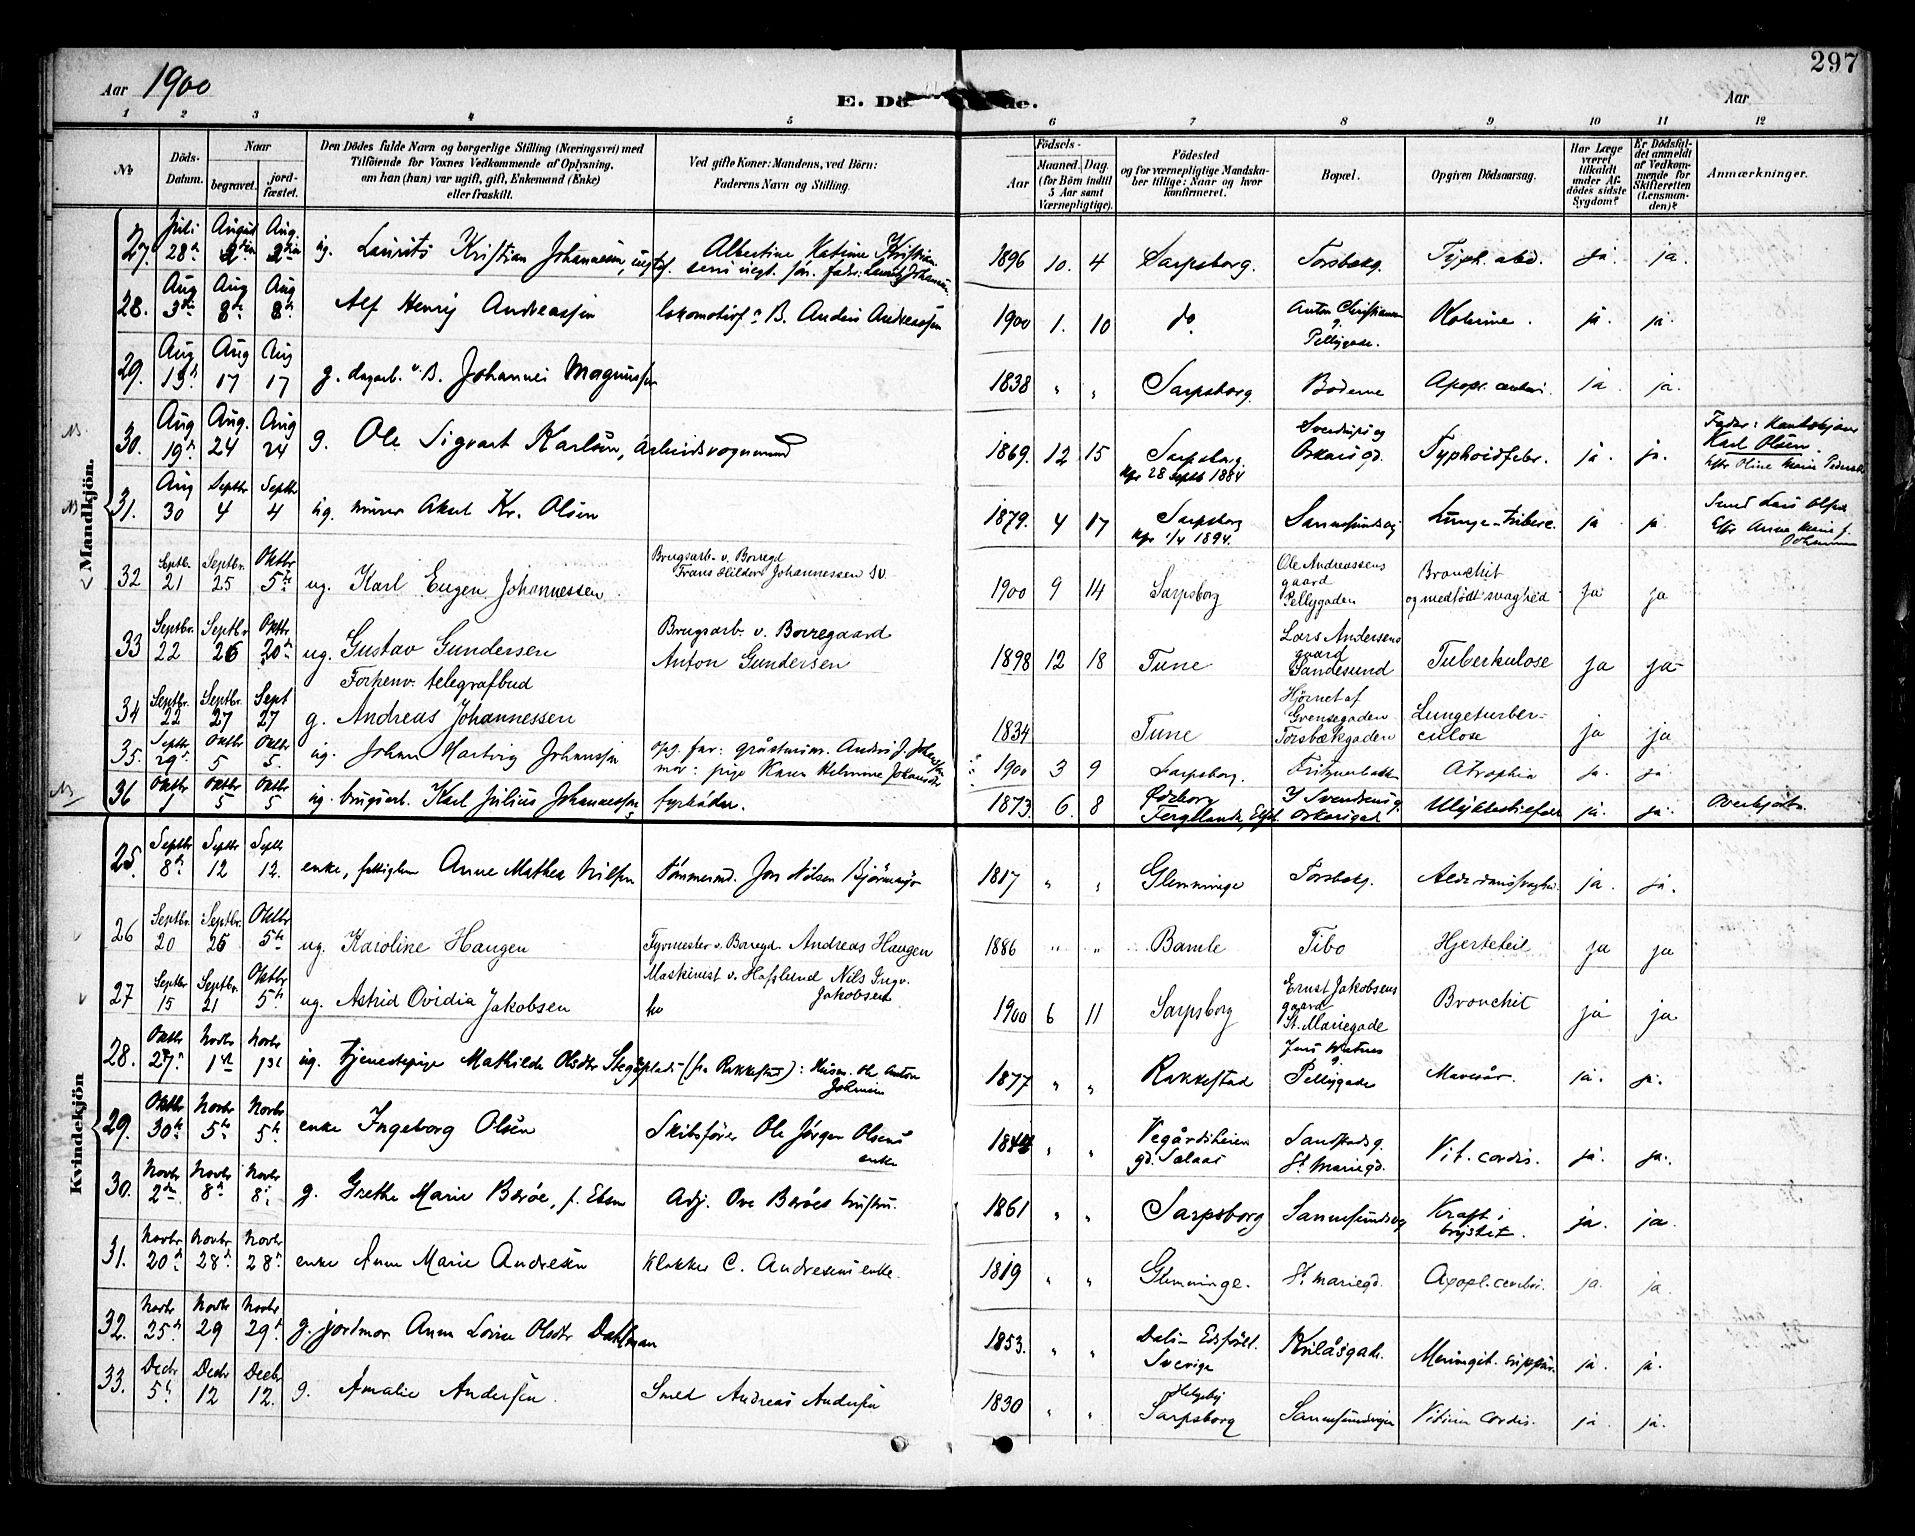 297
Aar 1900
E. Dö de.
Aar
1 2 3 4 5 6 7 8 9 10 11 12
No
Döds-Datum.
Naar
begravet.
jord-fæstet.
Den Dödes fulde Navn og borgerlige Stilling (Næringsvei) med
Tilföiende for Voxnes Vedkommende af Oplysning,
om han (hun) var ugift, gift, Enkemand (Enke)
eller fraskilt.
Ved gifte Koner: Mandens, ved Börn:
Faderens Navn og Stilling.
Födsels-
Aar
Maaned. Dag.
(for Börn indtil
5 Aar samt
Værnepligtige).
Födested
og for værnepligtige Mandska-
ber tillige: Naar og hvor
konfirmeret.
Bopæl.
Opgiven Dödsaarsag.
Har Læge
været
tilkaldt
under Af-
dödes sidste
Sygdom?
Er Dödsfal-
det anmeldt
af Vedkom-
mende for
Skifteretten
(Lensman-
den)?
Anmærkninger.
Mandkjön.
27. Juli 28 August 2den Aug. 2den ug. Laurits Kristian Johannesen, Albertine Katrine Kristian 1896 10. 4 Sarpsborg. Torsbækg. Typh. abd. ja. ja.
28. Aug 3die Aug 8de Aug 8de Alf Henrij Andreassen lokomotivf. B. Anders Andreassen 1900 1. 10 do Anton Christiansen g. Pellygade. Kolerine. ja. ja.
29. Aug 13 Aug 17 Aug 17 g. dagarb. v. B. Johannes Magnussen 1838 " " Sarpsborg. Boderne Apopl. cerebri. ja. ja.
NB. 30. Aug 19 Aug. 24 Aug 24 g. Ole Sigvart Karlsen, arbeidsvognmand 1869. 12 15 Sarpsborg Kfr 28 Septb 1884 Sverdrups og Oskars gd. Typhoidfebr. ja. ja. Fader: Karl Olsen. Efter Oline Marie
NB 31. Aug 30 Septbr 4 Septbr 4 ug. murer Aksel Kr. Olsen 1879. 4 17 Sarpsborg Kfr 1/4 1894. Sannesundsvej Lunge-tuberc. ja ja. Smed Lars Olsen Efter Anna
32 Septb. 21 Septbr. 25 Oktbr 5te ug. Karl Eugen Johannessen Brugsarb. v. Borregd Frans Hildor Johannessen 1900 9 14 Sarpsborg Ole Andreassens gaard Pellygaden Bronchit og medfödt svaghed Ja ja
33 Septbr. 22 Septbr. 26 Oktbr 20de ug. Gustav Gundersen Brugsarb. v. Borregaard Anton Gundersen 1898 12 18 Tune Lars Andersens gaard Sandesund Tuberkulose ja ja
34 Septbr. 22 Septbr. 27 Sept 27 g. Forhenv. telegrafbud Andreas Johannessen 1834 Tune Hjørnet af Grensegaden Torsbækgaden Lungetuber-culose ja ja
35. Septbr. 29 Oktbr 5 Oktbr 5. ug. Johan Hartvig Johansen opg. far: gråstensm. Anders J. Johansen mor: pige Karen Helmine Johansdtr 1900 3 9 Sarpsborg. Atrophia ja. ja.
NB 36 Oktbr 1 Oktbr 5 Oktbr 5 ug. brugsarb. Karl Julius Johannessen, fyrbøder. 1873. 6. 8 J Svendsens g. Oskarsgad Ulykkestilfælde ja. ja.
Kvindekjön
25. Septbr 8de Septbr 12 Septbr 12. enke, fattiglem Anne Mathea Nilsen Tömmermd. Jon Nilsen 1817 " " Glemminge Torsbækg. Alderdomssvaghed. ja. ja.
26 Septbr. 20 Septbr. 25 Oktbr 5te ug. Karoline Haugen Fyrmester v. Borregd. Andreas Haugen 1886 " " Bamle Tibo Hjertefeil ja ja
27 Septbr 15 Septbr. 21 Oktbr 5te ug. Astrid Ovidia Jakobsen Maskinist v. Hafslund Nils Ingv. Jakobsen 1900 6 11 Sarpsborg Ernst Jakobsens gaard St. Mariegade Bronchit ja ja
28. Oktbr 27. Novbr 1st Novbr 1st ug. tjenestepige Mathilde Olsdtr (fra Rakkestad): Husm. Ole Anton Johnsen 1877 " " Rakkestad Pellygade Mavesår. ja. ja.
29. Oktbr 30te Novbr 5te Novbr 5te enke Ingeborg Olsen Skibsfører Ole Jörgen Olsens enke " " Vegårdsheien gd. Salaas Sandstads g. St. Mariegd. Vit. cordis. ja. ja.
30. Novbr 2den Novbr 8de Novbr 8de g. Grethe Marie Bærøe, f. Ebsen Adj. Ove Bærøes hustru. 1861 " " Sarpsborg Sannesundsvej Kræft i brystet. ja. ja.
31. Novbr 20de Novbr 28de Novbr 28de enke Anne Marie Andresen Klokker C. Andresens enke. 1819 " " Glemminge. St. Mariegd. Apopl. cerebri. ja. ja.
32. Novbr 25de Novbr 29 Novbr 29de g. jordmor Anna Lovise Olsdtr Dahlman 1853. " " Dals-Edsfölt. Sverige Kvilåsgade. Meningit. ja. ja.
33. Decbr 5te Decbr 12 Decbr 12. g. Amalie Andersen. Smed Andreas Andersen 1830 " " Helgeby Sarpsborg Sannesundsvejen Vitium Cordis. ja. ja.